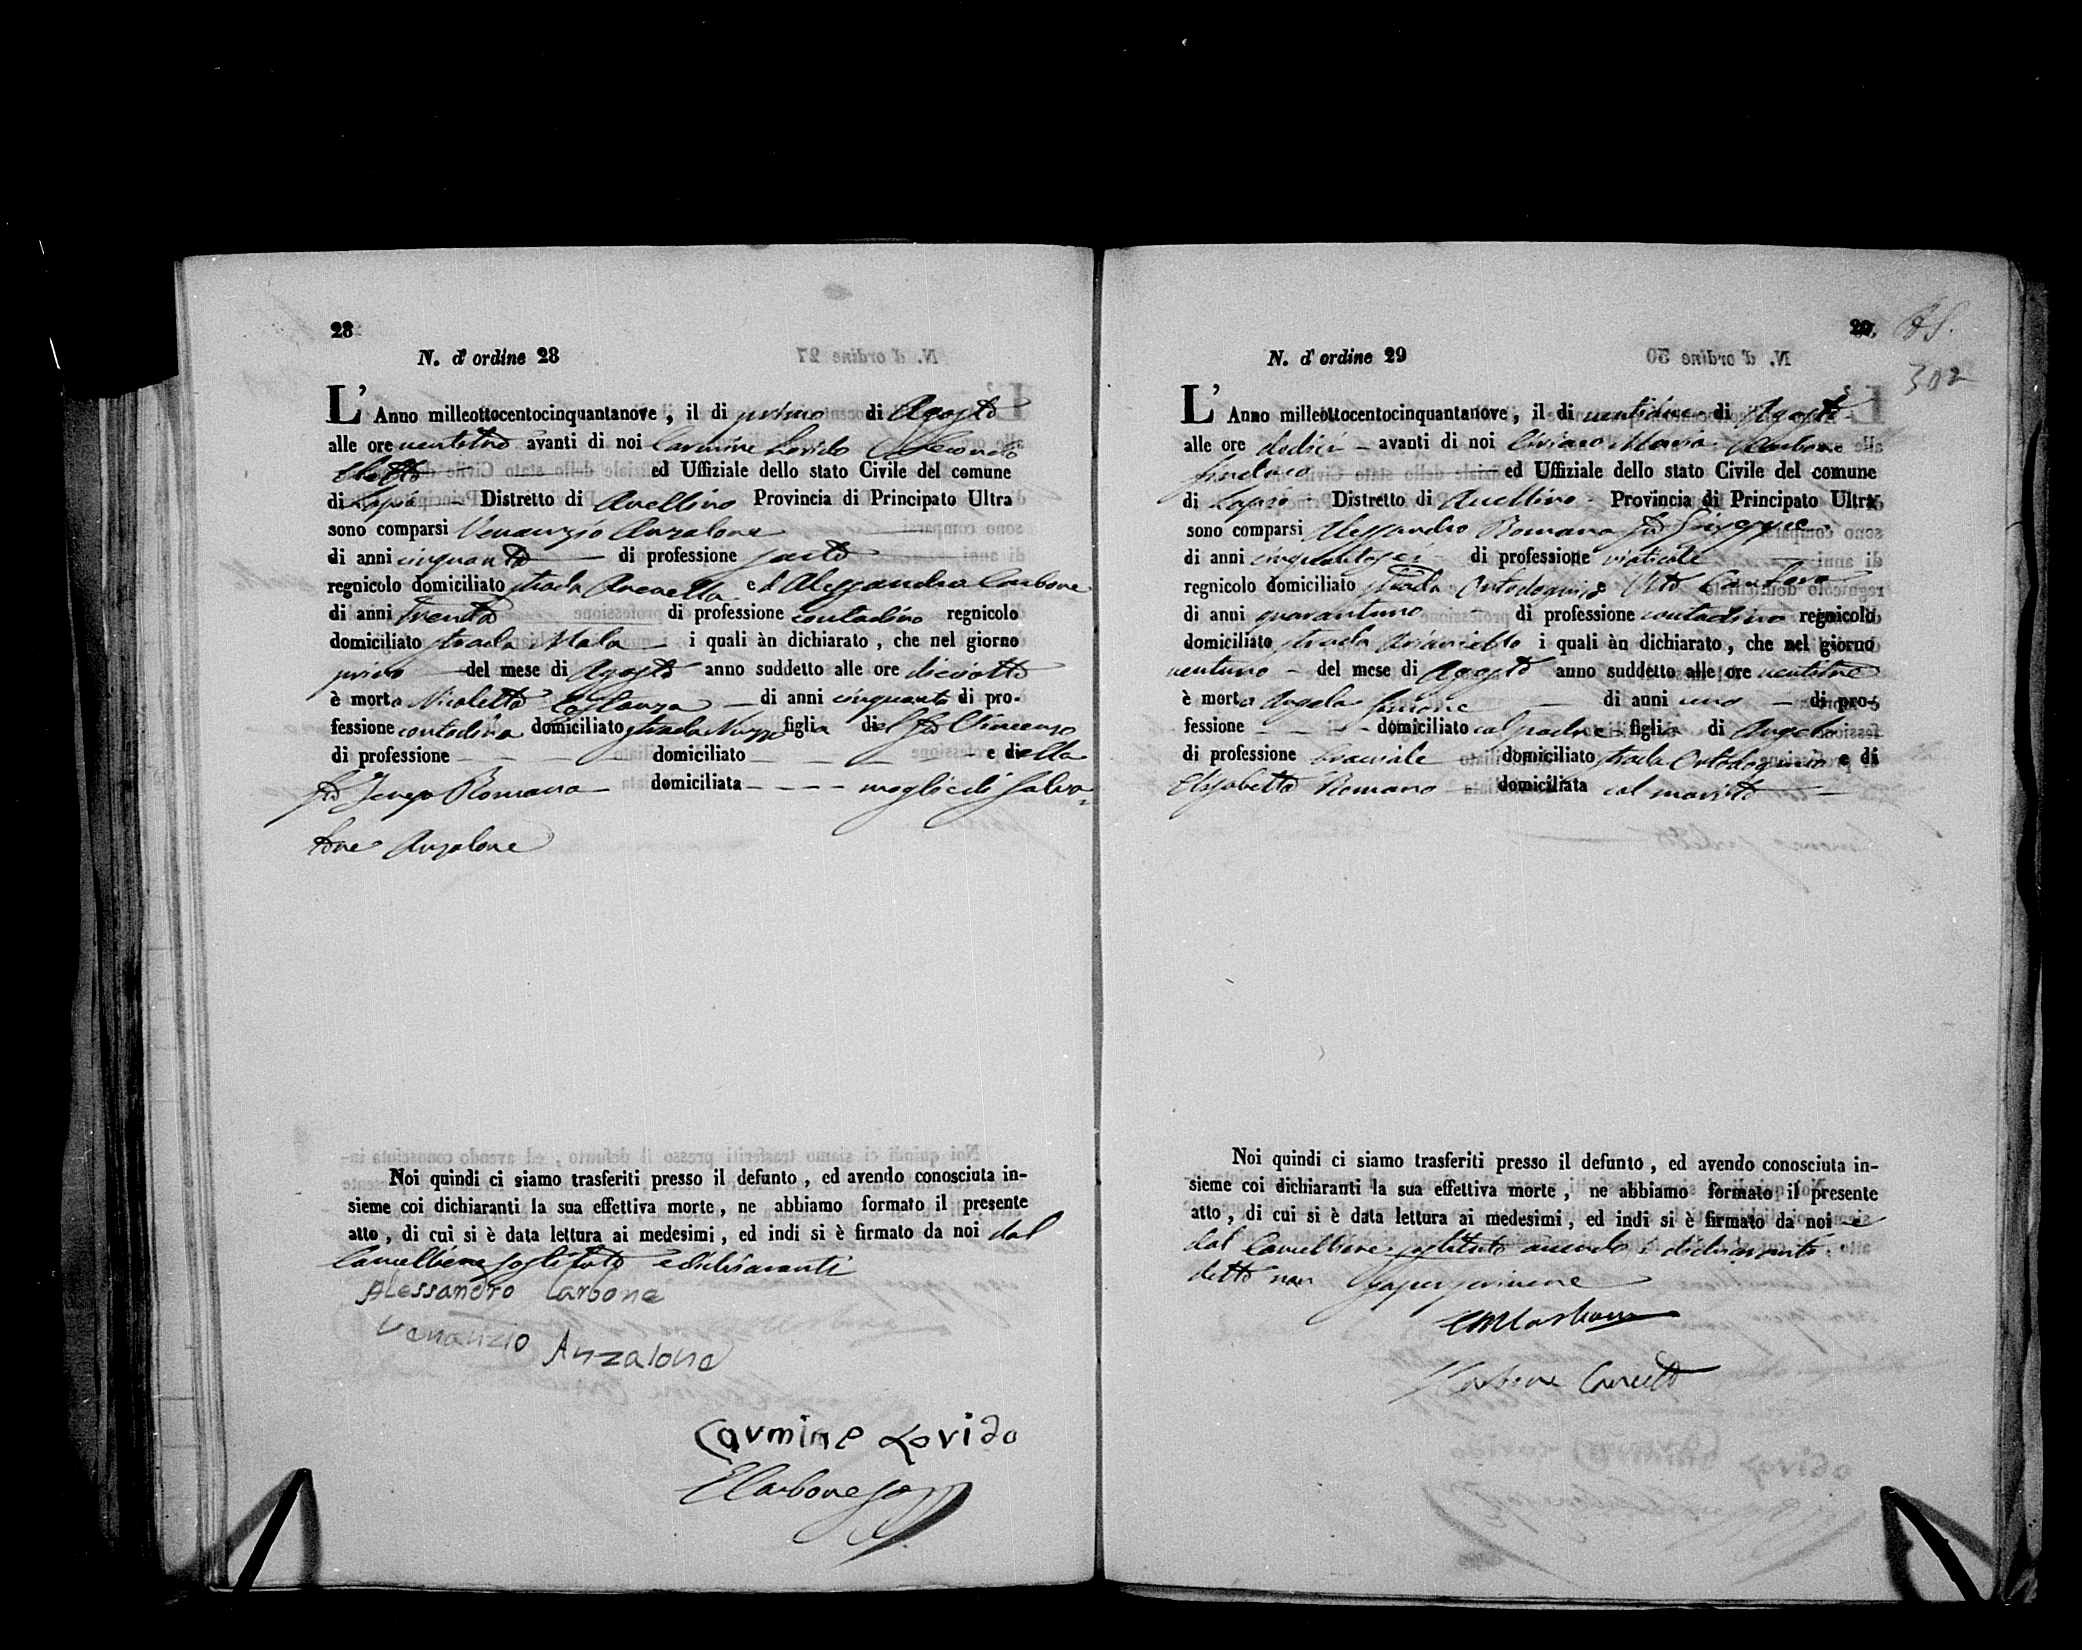 28
N. d'ordine 28
L'Anno milleottocentocinquantanove, il di primo di Agosto
alle ore ventitre avanti di noi Carmine Lovido Secondo
Eletto ed Uffiziale dello stato Civile del comune
di Lapio Distretto di Avellino Provincia di Principato Ultra
sono comparsi Venanzio Anzalone
di anni cinquanta di professione sarto
regnicolo domiciliato strada Arenella e d'Alessandro Carbone
di anni trenta di professione contadino regnicolo
domiciliato strada Mala i quali àn dichiarato, che nel giorno
primo del mese di Agosto anno suddetto alle ore diciotto
è morta Nicoletta Costanza di anni cinquanta di pro-
fessione contadina domiciliato strada figlia del fu Vincenzo
di professione domiciliato e della
fu Romano domiciliata moglie di Salva-
tore Anzalone
Noi quindi ci siamo trasferiti presso il defunto, ed avendo conosciuta in-
sieme coi dichiaranti la sua effettiva morte, ne abbiamo formato il presente
atto, di cui si è data lettura ai medesimi, ed indi si è firmato da noi dal
Cancelliere sostituto e dichiaranti
Alessandro Carbone
Venanzio Anzalone
Carmine Lovido
ECarbone
29.
302
N. d'ordine 29
L'Anno milleottocentocinquantanove, il di ventidue di Agosto
alle ore dodici avanti di noi Ciriaco Maria Carbone
Sindaco ed Uffiziale dello stato Civile del comune
di Lapio Distretto di Avellino Provincia di Principato Ultra
sono comparsi Alessandro Romano fu Giuseppe
di anni cinquantasei di professione viaticale
regnicolo domiciliato strada Ortodonnico e Vito
di anni quarantuno di professione contadino regnicolo
domiciliato strada i quali àn dichiarato, che nel giorno
ventuno del mese di Agosto anno suddetto alle ore ventitre
è morta Angela Simone di anni uno di pro-
fessione domiciliato col padre figlia di Angelo
di professione bracciale domiciliato strada e di
Elisabetta Romano domiciliata col marito
Noi quindi ci siamo trasferiti presso il defunto, ed avendo conosciuta in-
sieme coi dichiaranti la sua effettiva morte, ne abbiamo formato il presente
atto, di cui si è data lettura ai medesimi, ed indi si è firmato da noi e
dal Cancelliere sostituto avendo i dichiaranti
detto non saper scrivere
CMCarbone
Carbone